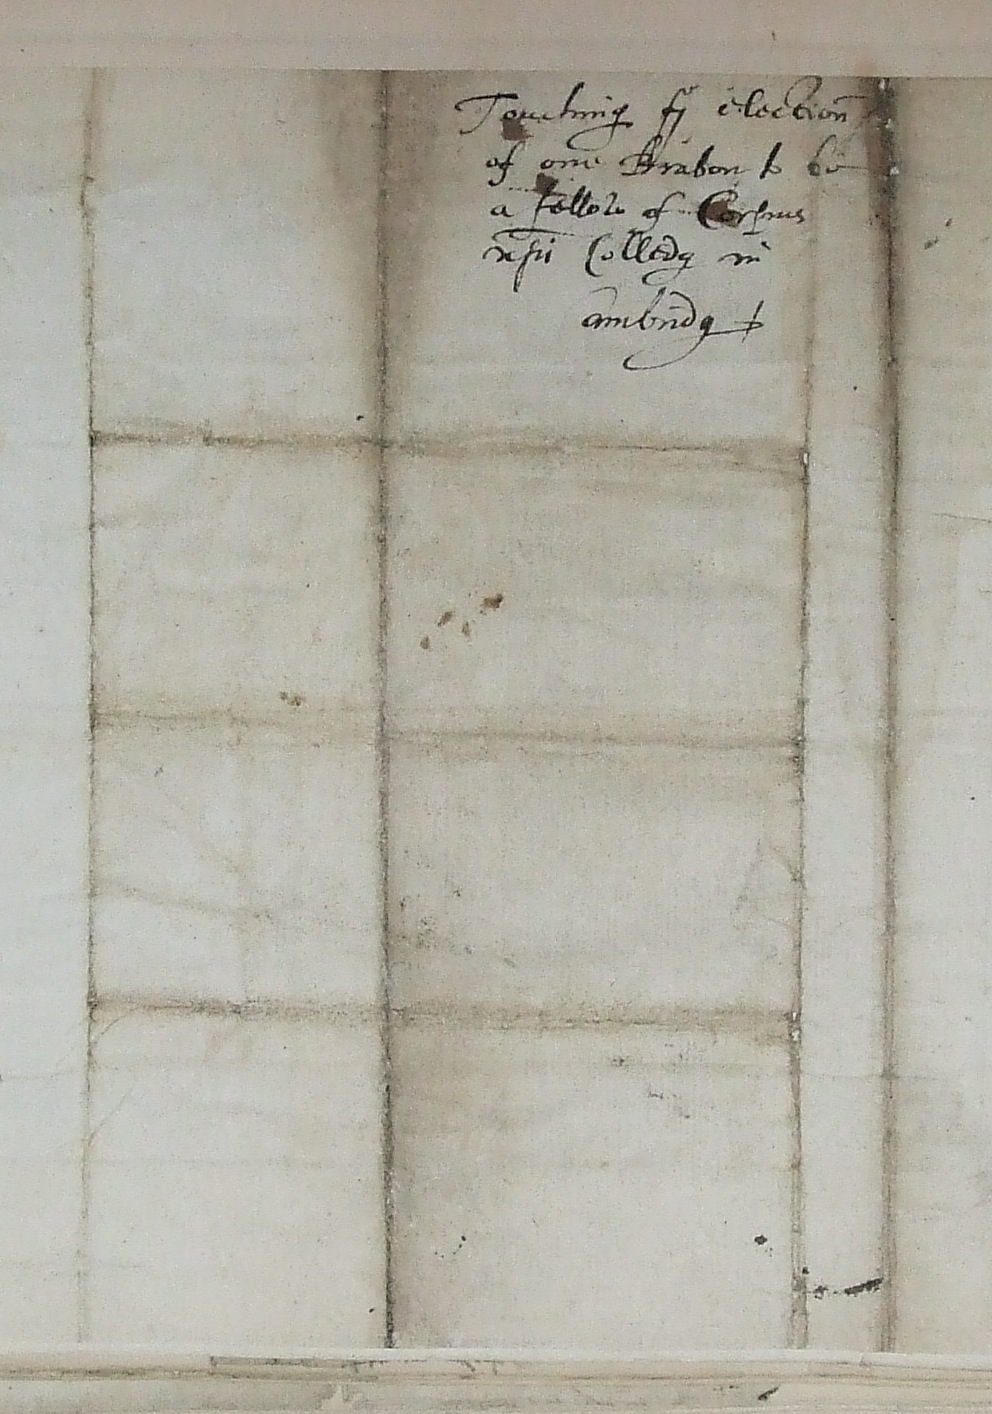 Touching ye election
of one Brabon to be
a fellow of Corpus
xpi Colledg in
Cambridg